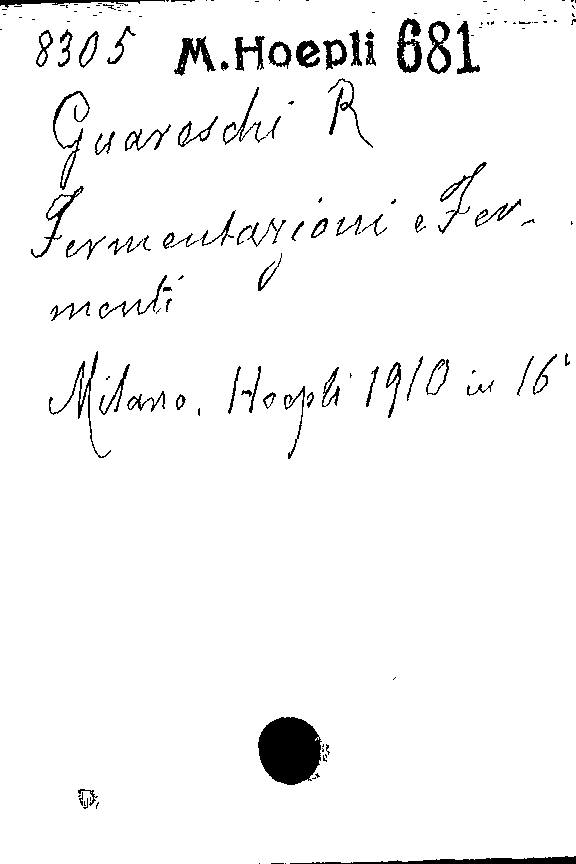 8305 M. Hoepli 681
Guareschi R
Fermentazioni e Fer-
menti
Milano, Hoepli 1910 in 16°